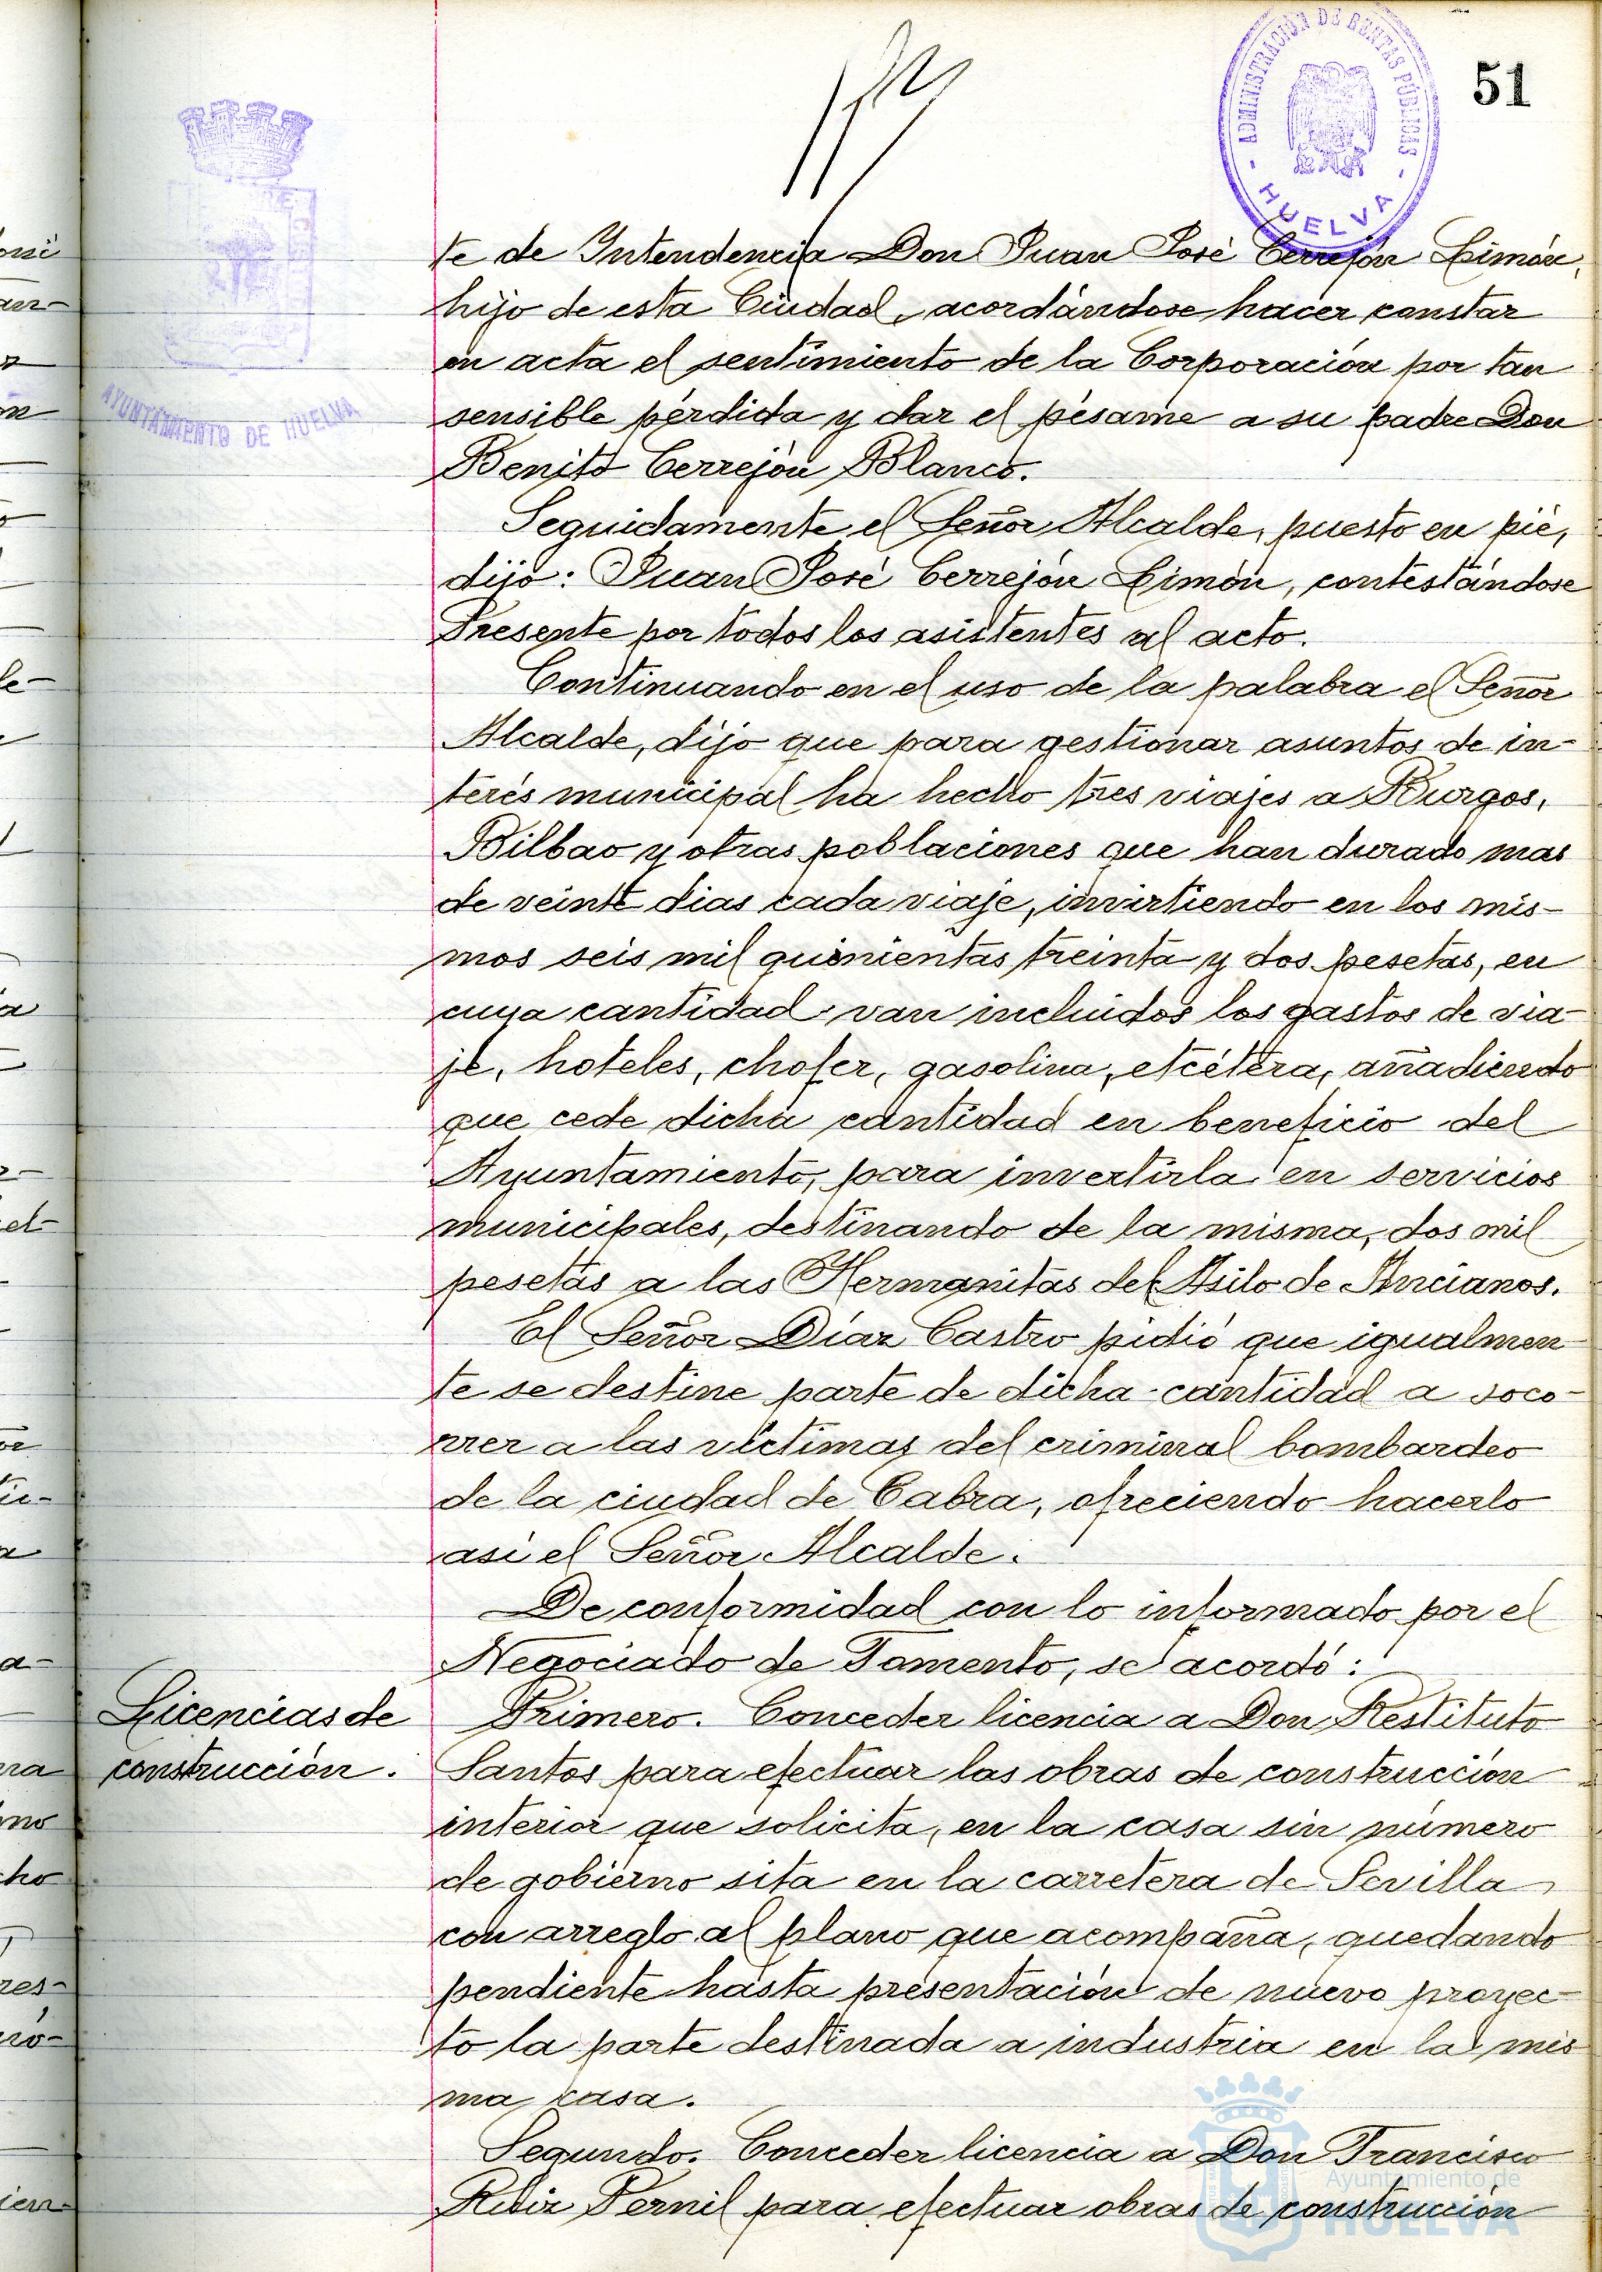 51
ADMINISTRACIÓN DE RENTAS PÚBLICAS
- HUELVA -
AYUNTAMIENTO DE HUELVA
te de Intendencia Don Juan José Cerrejón Limón,
hijo de esta Ciudad, acordándose hacer constar
en acta el sentimiento de la Corporación por tan
sensible pérdida y dar el pésame a su padre Don
Benito Cerrejón Blanco.
Seguidamente el Señor Alcalde, puesto en pié,
dijo: Juan José Cerrejón Limón, contestándose
Presente por todos los asistentes al acto.
Continuando en el uso de la palabra el Señor
Alcalde, dijo que para gestionar asuntos de in-
terés municipal ha hecho tres viajes a Burgos,
Bilbao y otras poblaciones que han durado mas
de veinte dias cada viaje, invirtiendo en los mis-
mos seis mil quinientas treinta y dos pesetas, en
cuya cantidad van incluidos los gastos de via-
je, hoteles, chofer, gasolina, etcétera, añadiendo
que cede dicha cantidad en beneficio del
Ayuntamiento, para invertirla en servicios
municipales, destinando de la misma, dos mil
pesetas a las Hermanitas del Asilo de Ancianos.
El Señor Díaz Castro pidió que igualmen-
te se destine parte de dicha cantidad a soco-
rrer a las víctimas del criminal bombardeo
de la ciudad de Cabra, ofreciendo hacerlo
así el Señor Alcalde.
De conformidad con lo informado por el
Negociado de Fomento, se acordó:
Licencias de
construcción.
Primero. Conceder licencia a Don Restituto
Santos para efectuar las obras de construcción
interior que solicita, en la casa sin número
de gobierno sita en la carretera de Sevilla
con arreglo al plano que acompaña, quedando
pendiente hasta presentación de nuevo proyec-
to la parte destinada a industria en la mis
ma casa.
Segundo. Conceder licencia a Don Francisco
Rubiz Pernil para efectuar obras de construcción
Ayuntamiento de
HUELVA